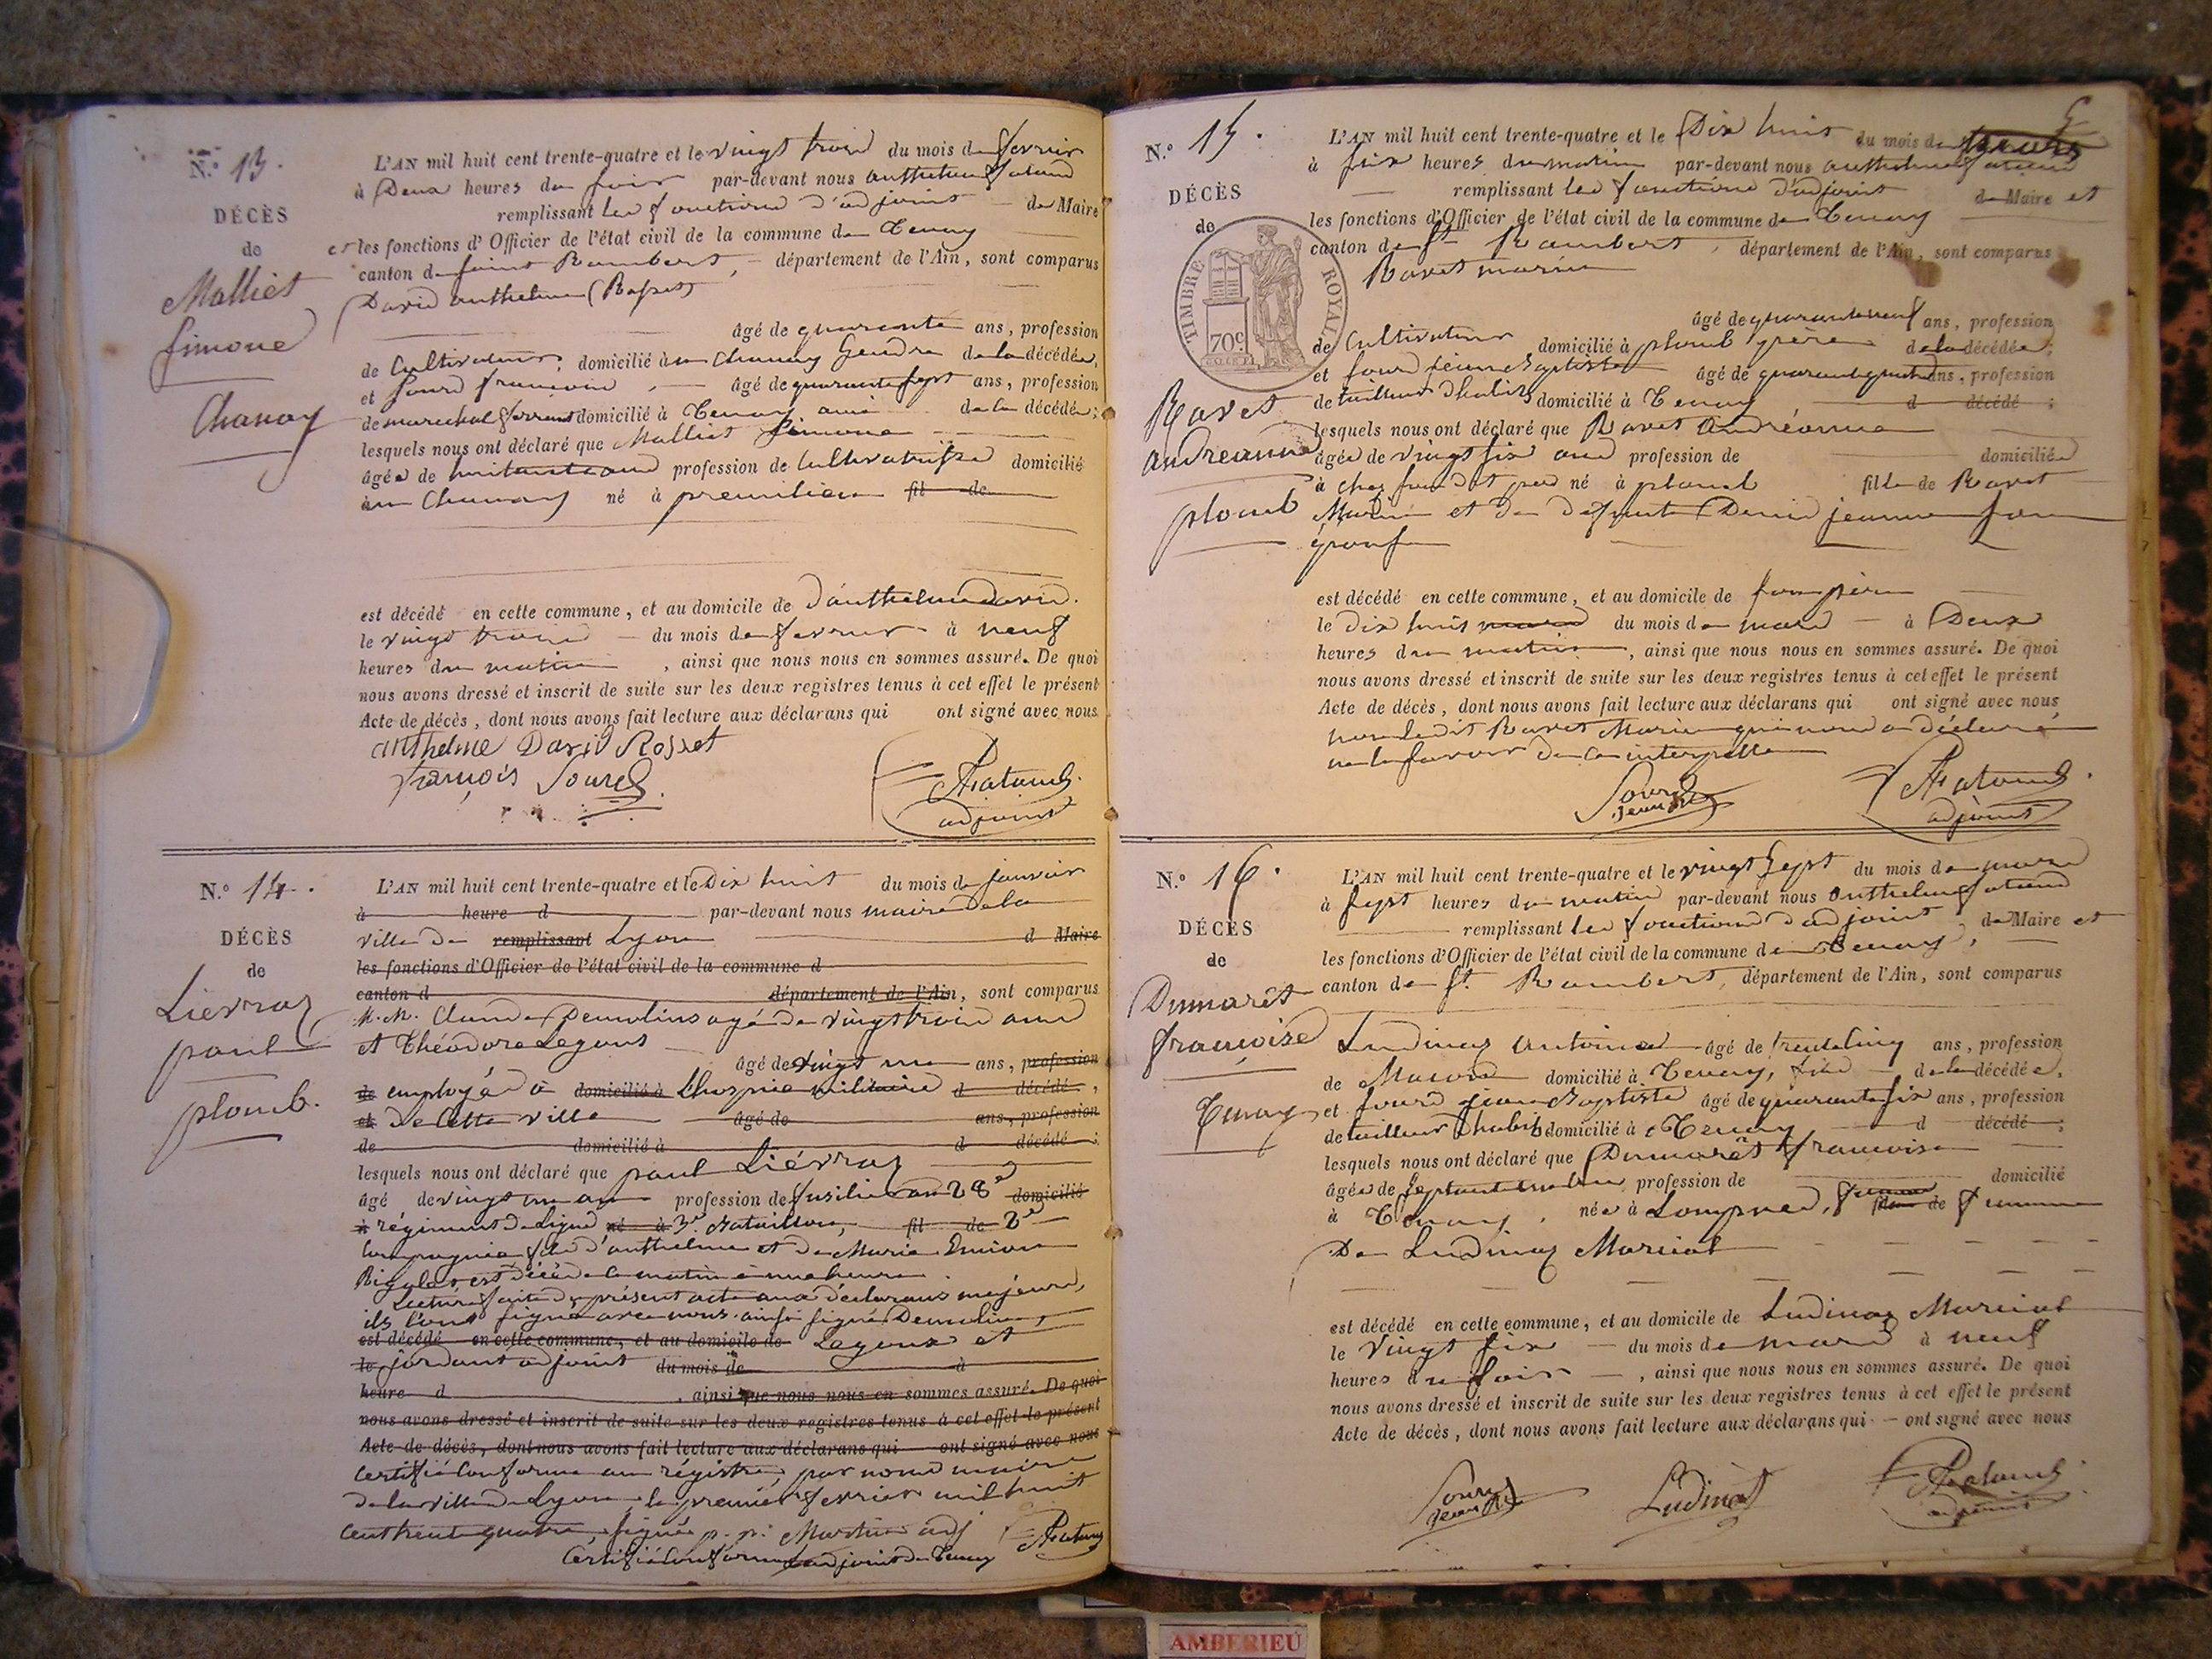 N.° 13.
DÉCÈS
de
Malliet
Simone
Chanay
L'AN mil huit cent trente-quatre et le vingt trois du mois de fevrier
à Deux heures du soir par-devant nous anthelme
remplissant les fonctions d'adjoint de Maire
et les fonctions d'Officier de l'état civil de la commune de Tenay
canton de saint Rambert, département de l'Ain, sont comparus
David anthelme (Rosset)
âgé de quarante ans, profession
de Cultivateur, domicilié à Chanay Gendre de la décédée,
et Sourd françois, âgé de quarante sept ans, profession
de marechal ferrant domicilié à Tenay, ami de la décédée;
lesquels nous ont déclaré que Malliet Simone
âgée de profession de Cultivatrice domicilié
Chanay né à premilieu fil de
est décédé en cette commune, et au domicile de d'anthelme David.
le vingt trois du mois de fevrier à neuf
heures du matin, ainsi que nous nous en sommes assuré. De quoi
nous avons dressé et inscrit de suite sur les deux registres tenus à cet effet le présent
Acte de décès, dont nous avons fait lecture aux déclarans qui ont signé avec nous
anthelme David Rosset
françois Sourd
adjoint
N.° 14.
DÉCÈS
de
Liévraz
paul
plomb.
L'AN mil huit cent trente-quatre et le Dix huit du mois de janvier
à heure d par-devant nous maire de la
ville de remplissant Lyon d Maire
les fonctions d'Officier de l'état civil de la commune d
canton d département de l'Ain, sont comparus
M.M. Claude Demolins agé de vingt trois ans
et Théodore Legous
âgé de vingt un ans, profession
de employés à domicilié à l'hospice militaire d décédé,
et de Cette ville âgé de ans, profession
de domicilié à d décédé;
lesquels nous ont déclaré que paul Liévraz
âgé de vingt un an profession de fusilier au 28e domicilié
à régiment de Ligne né à 3e Bataillon, fil de 2e
Compagnie fils d'anthelme et de Marie
est décédé ce matin à une heure.
Lecture faite du présent acte aux déclarans majeurs,
ils l'ont signé avec nous. ainsi signé Demolins,
est décédé en cette commune, et au domicile de Legous et
le adjoint du mois de à
heure d, ainsi que nous nous en sommes assuré. De quoi
nous avons dressé et inscrit de suite sur les deux registres tenus à cet effet le présent
Acte de décès, dont nous avons fait lecture aux déclarans qui ont signé avec nous
Certifié Conforme au régistre, par nous maire
de la ville de Lyon le premier fevrier mil huit
cent trente quatre, signé p. p. Martin adj
Certifié Conforme adjoint de Tenay
N.° 15.
DÉCÈS
de
TIMBRE ROYAL
70c
Ravet
andreanne
plomb
L'AN mil huit cent trente-quatre et le Dix huit du mois de
à six heures du matin par-devant nous anthelme
remplissant les fonctions d'adjoint de Maire et
les fonctions d'Officier de l'état civil de la commune de Tenay
canton de St Rambert, département de l'Ain, sont comparus
Ravet marin
âgé de quarante neuf ans, profession
de Cultivateur domicilié à plomb père de la décédée;
et sourd jean Baptiste âgé de ans, profession
de tailleur d'habits domicilié à Tenay d décédé;
lesquels nous ont déclaré que Ravet Andréanne
âgée de vingt six ans profession de domiciliée
à chez son dit père né à plomb fille de Ravet
Marin et de défunte jeanne son
épouse
est décédé en cette commune, et au domicile de son père
le dix huit mars du mois de mars à Deux
heures du matin, ainsi que nous nous en sommes assuré. De quoi
nous avons dressé et inscrit de suite sur les deux registres tenus à cet effet le présent
Acte de décès, dont nous avons fait lecture aux déclarans qui ont signé avec nous
non ledit Ravet Marin qui nous a déclaré
ne le savoir de ce interpellé
Sourd
adjoint
N.° 16.
DÉCÈS
de
Dumarêt
françoise
Tenay
L'AN mil huit cent trente-quatre et le vingt sept du mois de mars
à sept heures du matin par-devant nous anthelme
remplissant les fonctions d'adjoint de Maire et
les fonctions d'Officier de l'état civil de la commune de Tenay,
canton de St. Rambert, département de l'Ain, sont comparus
Ludinaz antoine âgé de trente cinq ans, profession
de Macon domicilié à Tenay, fils de la décédée,
et sourd jean Baptiste âgé de quarante six ans, profession
de tailleur d'habits domicilié à Tenay d décédé;
lesquels nous ont déclaré que Dumarêt françoise
âgée de profession de domicilié
à Tenay, née à Lompnes, de femme
De Ludinaz Marcial
est décédé en cette commune, et au domicile de Ludinaz Marcial
le vingt six du mois de mars à neuf
heures du soir, ainsi que nous nous en sommes assuré. De quoi
nous avons dressé et inscrit de suite sur les deux registres tenus à cet effet le présent
Acte de décès, dont nous avons fait lecture aux déclarans qui ont signé avec nous
Sourd
adjoint
AMBERIEU